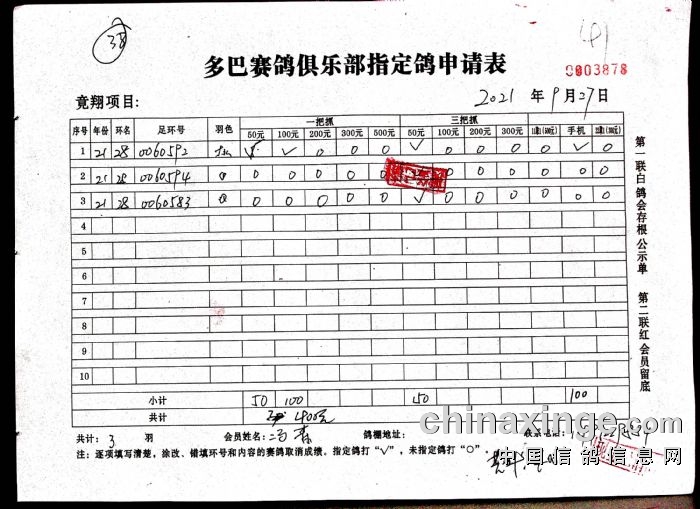 38
多巴赛鸽俱乐部指定鸽申请表
0003878
竟翔项目:
2021 年 9 月 27 日
序号 年份 环名 足环号 羽色 一把抓 三把抓
50元 100元 200元 300元 500元 50元 100元 200元 300元 手机
1 21 28 0060592 √ √ 0 0 0 √ 0 0 0 0 √ 0
2 21 28 0060594 0 0 0 0 0 0 0 0 0 0 0
3 21 28 0060583 0 0 0 0 0 √ 0 0 0 0 0 0
4
5
6
7
8
9
10
小计 50 100 150 100
共计 400元
共计: 3 羽 会员姓名: 鸽棚地址: 联系电话:
注: 逐项填写清楚, 涂改、错填环号和内容的赛鸽取消成绩。指定鸽打“√”, 未指定鸽打“O”。
第一联白鸽会存根公示单 第二联红会员留底
chinaxinge.com
中国信鸽信息网